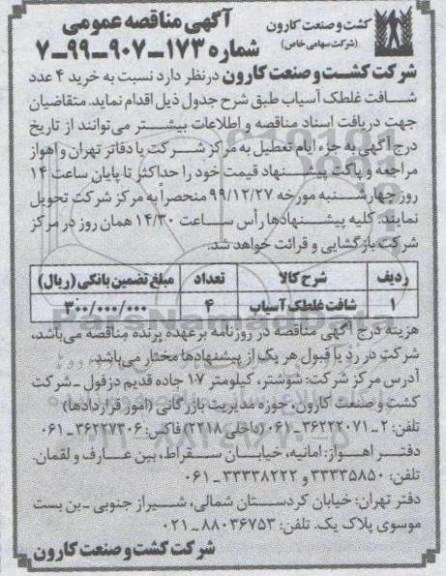 کشت و صنعت کارون
(شرکت سهامی خاص)
آگهی مناقصه عمومی
شماره ۱۷۳-۹۰۷-۹۹-۷
شرکت کشت و صنعت کارون درنظر دارد نسبت به خرید ۴ عدد
شافت غلطک آسیاب طبق شرح جدول ذیل اقدام نماید. متقاضیان
جهت دریافت اسناد مناقصه و اطلاعات بیشتر می‌توانند از تاریخ
درج آگهی به جزء ایام تعطیل به مرکز شرکت یا دفاتر تهران و اهواز
مراجعه و پاکت پیشنهاد قیمت خود را حداکثر تا پایان ساعت ۱۴
روز چهارشنبه مورخه ۹۹/۱۲/۲۷ منحصراً به مرکز شرکت تحویل
نمایند. کلیه پیشنهادها رأس ساعت ۱۴/۳۰ همان روز در مرکز
شرکت بازگشایی و قرائت خواهد شد.
ردیف شرح کالا تعداد مبلغ تضمین بانکی (ریال)
۱ شافت غلطک آسیاب ۴ ۳۰۰/۰۰۰/۰۰۰
هزینه درج آگهی مناقصه در روزنامه برعهده برنده مناقصه می‌باشد،
شرکت در رد یا قبول هر یک از پیشنهادها مختار می‌باشد.
آدرس مرکز شرکت: شوشتر، کیلومتر ۱۷ جاده قدیم دزفول - شرکت
کشت و صنعت کارون، حوزه مدیریت بازرگانی (امور قراردادها)
تلفن: ۲-۳۶۲۲۲۰۷۱-۰۶۱ (داخلی ۲۲۱۸) فاکس: ۳۶۲۲۷۳۰۶-۰۶۱
دفتر اهواز: امانیه، خیابان سقراط، بین عارف و لقمان.
تلفن: ۳۳۳۳۵۸۵۰ و ۳۳۳۳۸۲۲۲-۰۶۱
دفتر تهران: خیابان کردستان شمالی، شیراز جنوبی - بن بست
موسوی پلاک یک. تلفن: ۸۸۰۳۶۷۵۳-۰۲۱
شرکت کشت و صنعت کارون